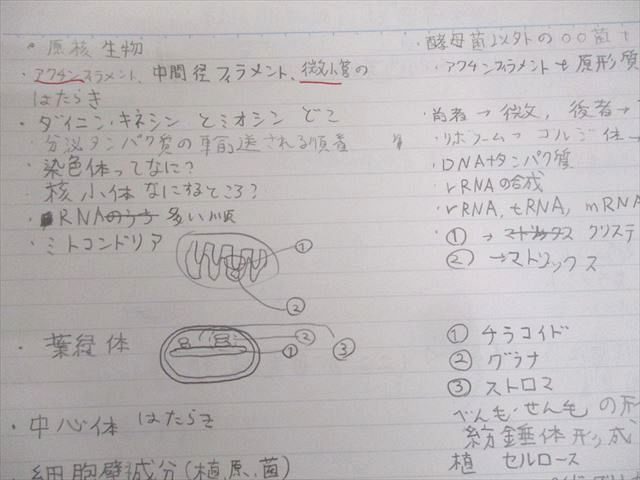 原核生物
・アクチンフィラメント、中間径フィラメント、微小管の
はたらき
・ダイニン・キネシンとミオシン どこ
・分泌タンパク質の輸送される順番
・染色体ってなに?
・核小体なにするところ?
・RNAのうち 多い順
・ミトコンドリア
①
②
・葉緑体
②
①
③
・中心体 はたらき
細胞壁成分(植,原,菌)
・酵母菌以外の○○菌
・アクチンフィラメント 原形質
前者→微, 後者→
・リボソーム→ゴルジ体→
・DNA+タンパク質
・rRNAの合成
・rRNA, tRNA, mRNA
① →マトリックス クリステ
② →マトリックス
① チラコイド
② グラナ
③ ストロマ
べん毛・せん毛の形
紡錘体形成
植 セルロース